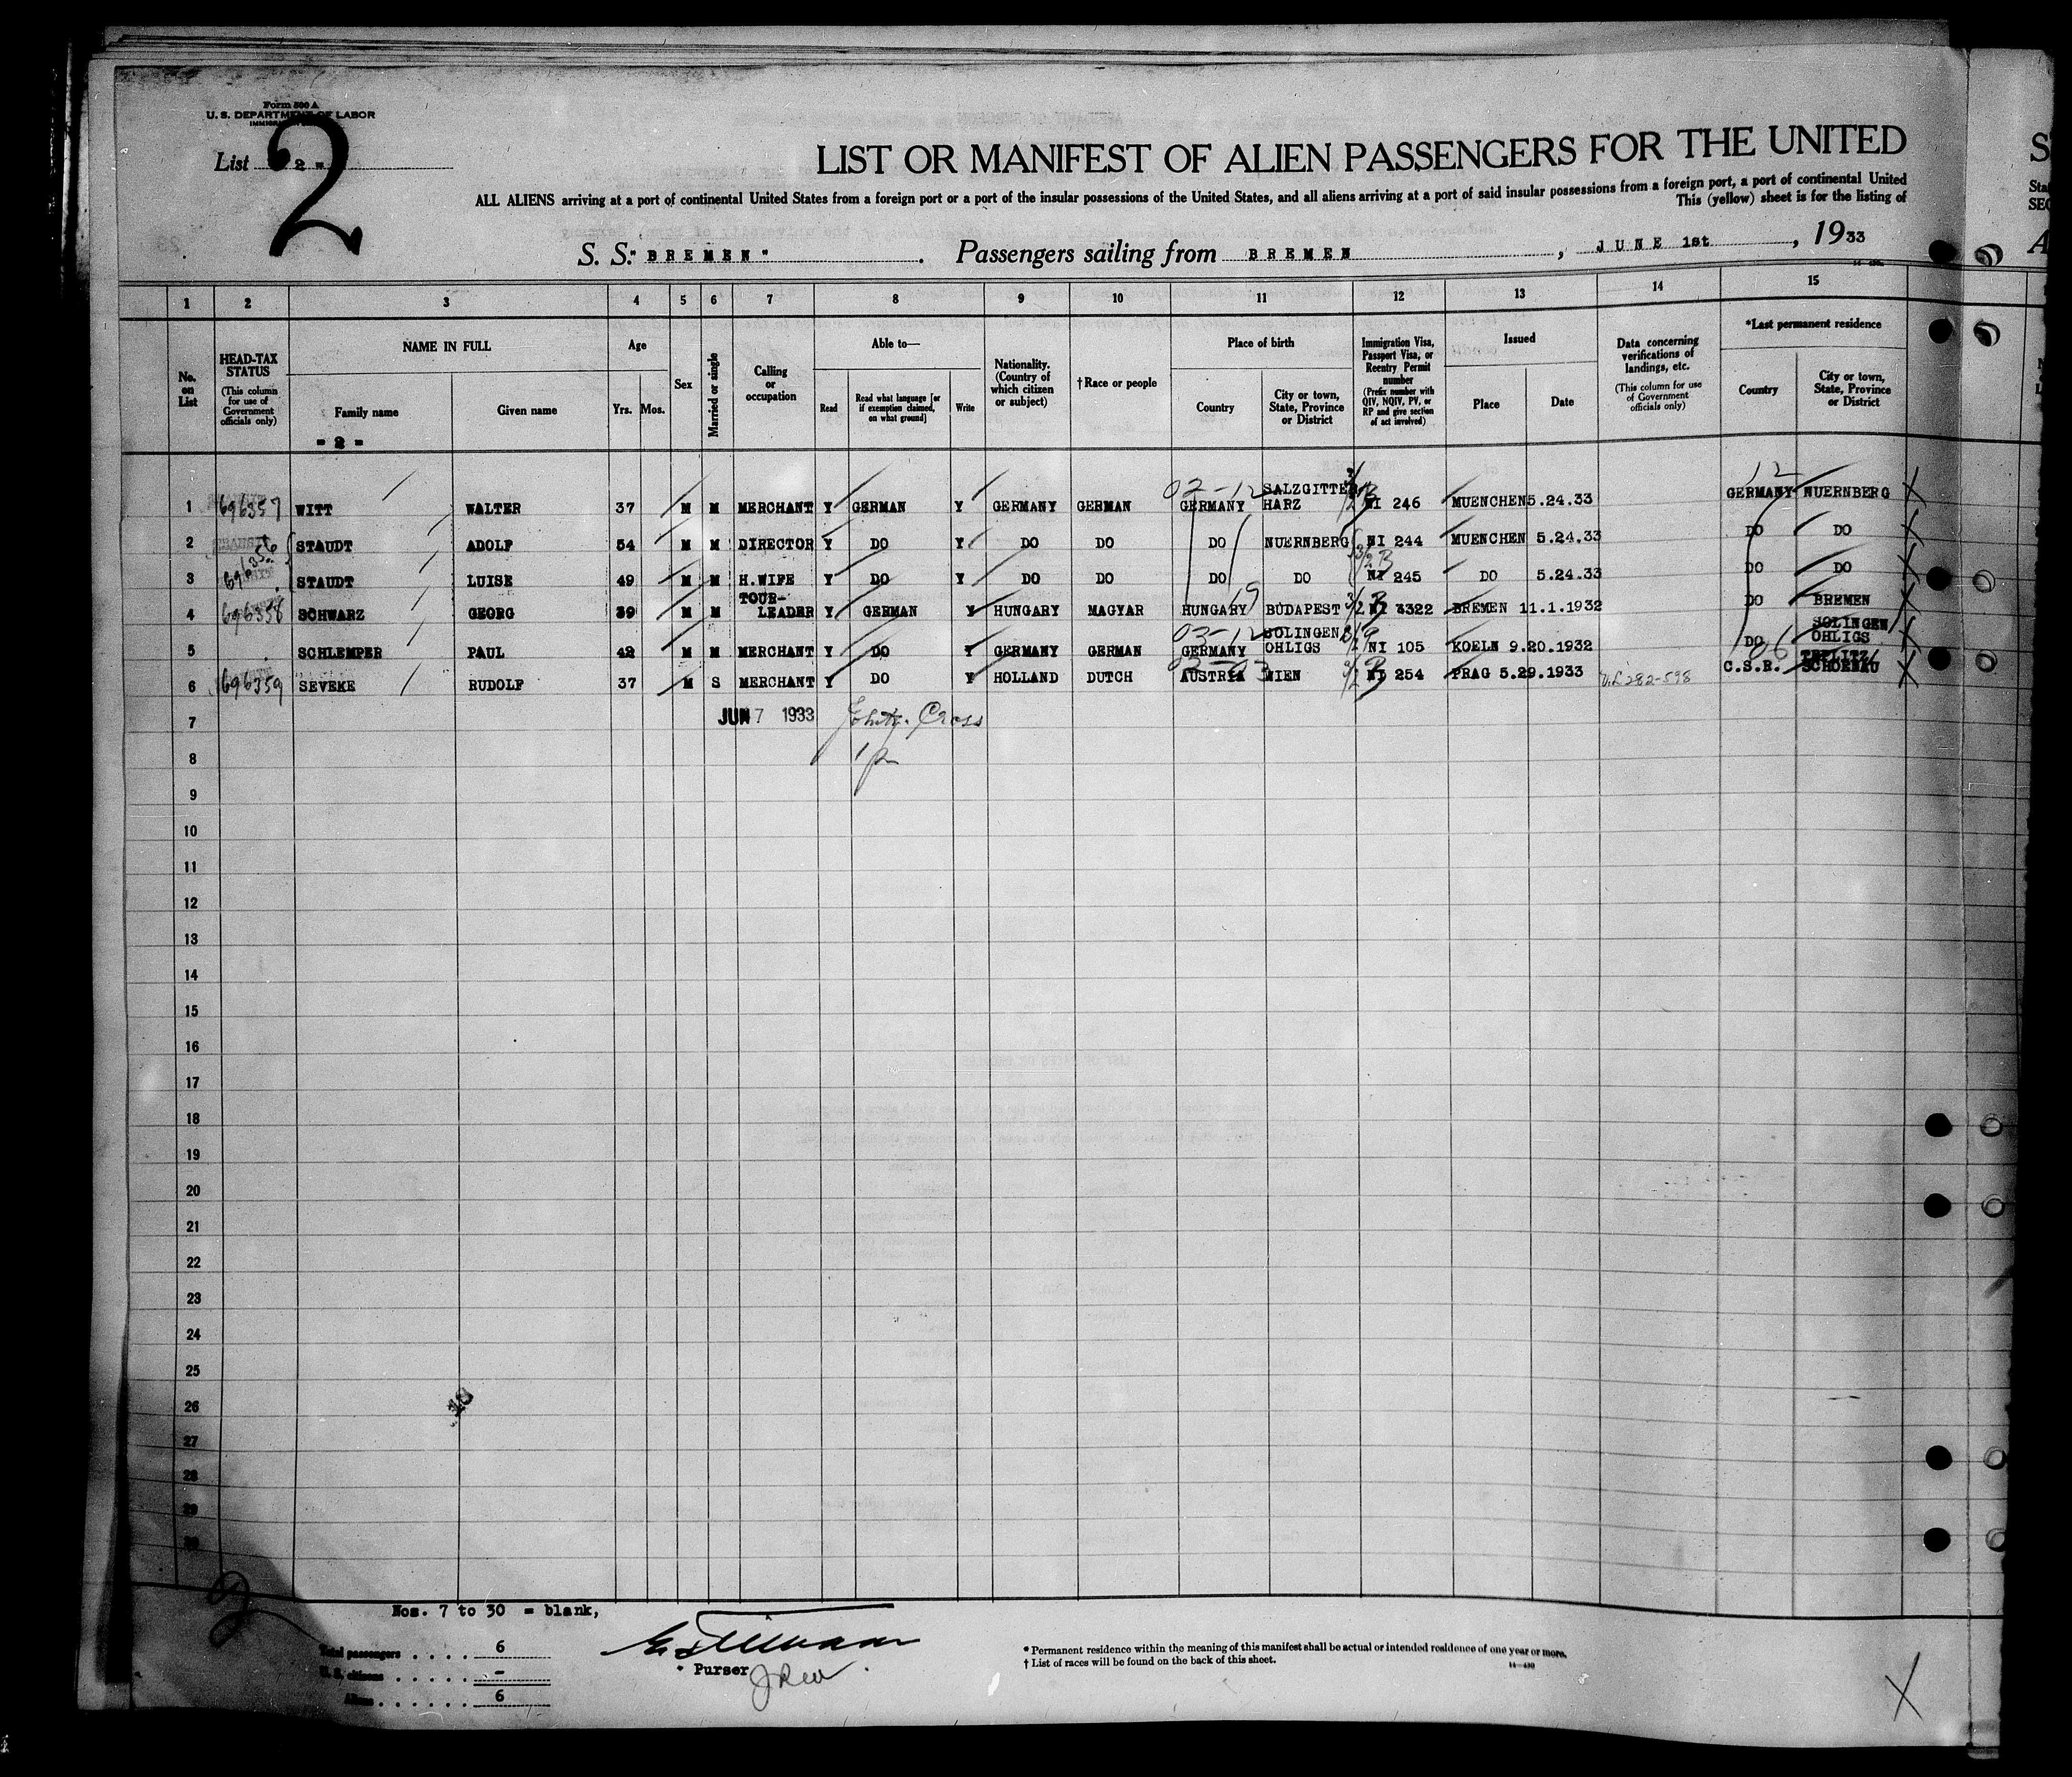 Form 500 A
U. S. DEPARTMENT OF LABOR
List - 2 -
2
LIST OR MANIFEST OF ALIEN PASSENGERS FOR THE UNITED
ALL ALIENS arriving at a port of continental United States from a foreign port or a port of the insular possessions of the United States, and all aliens arriving at a port of said insular possessions from a foreign port, a port of continental United
This (yellow) sheet is for the listing of
S. S. "BREMEN". Passengers sailing from BREMEN, JUNE 1st, 1933
1 2 3 4 5 6 7 8 9 10 11 12 13 14 15
No. on List
HEAD-TAX STATUS (This column for use of Government officials only)
NAME IN FULL
Family name
Given name
Age
Yrs. Mos.
Sex
Married or single
Calling or occupation
Able to—
Read
Read what language [or if exemption claimed, on what ground]
Write
Nationality. (Country of which citizen or subject)
† Race or people
Place of birth
Country
City or town, State, Province or District
Immigration Visa, Passport Visa, or Reentry Permit number (Prefix number with QIV, NQIV, PV, or RP and give section of act involved)
Issued
Place
Date
Data concerning verifications of landings, etc. (This column for use of Government officials only)
*Last permanent residence
Country
City or town, State, Province or District
- 2 -
1 696357 WITT WALTER 37 M M MERCHANT Y GERMAN Y GERMANY GERMAN 03-12 GERMANY SALZGITTER HARZ NI 246 MUENCHEN 5.24.33 12 GERMANY NUERNBERG X
2 STAUDT ADOLF 54 M M DIRECTOR Y DO Y DO DO DO NUERNBERG NI 244 MUENCHEN 5.24.33 DO DO X
3 696356 STAUDT LUISE 49 M M H.WIFE Y DO Y DO DO DO DO NI 245 DO 5.24.33 DO DO X
4 696358 SCHWARZ GEORG 39 M M TOUR-LEADER Y GERMAN Y HUNGARY MAGYAR HUNGARY BUDAPEST NI 4322 BREMEN 11.1.1932 DO BREMEN X
5 SCHLEMPER PAUL 42 M M MERCHANT Y DO Y GERMANY GERMAN 03-12 GERMANY SOLINGEN OHLIGS NI 105 KOELN 9.20.1932 DO SOLINGEN OHLIGS X
6 696359 SEVEKE RUDOLF 37 M S MERCHANT Y DO Y HOLLAND DUTCH 03-03 AUSTRIA WIEN NI 254 PRAG 5.29.1933 V.L 282-598 06 C.S.R. TEPLITZ SCHOENAU X
7 JUN 7 1933 Cross
8
9
10
11
12
13
14
15
16
17
18
19
20
21
22
23
24
25
26
27
28
29
30
Nos. 7 to 30 = blank,
Total passengers . . . . 6
U. S. citizens . . . . . . -
Aliens . . . . . . 6
Purser
* Permanent residence within the meaning of this manifest shall be actual or intended residence of one year or more.
† List of races will be found on the back of this sheet.
14—430
X